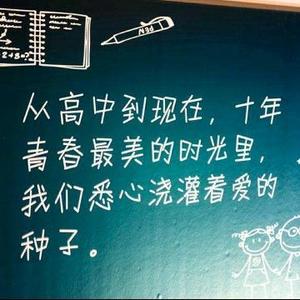 2+3=?
PEN
从高中到现在，十年
青春最美的时光里，
我们悉心浇灌着爱的
种子。